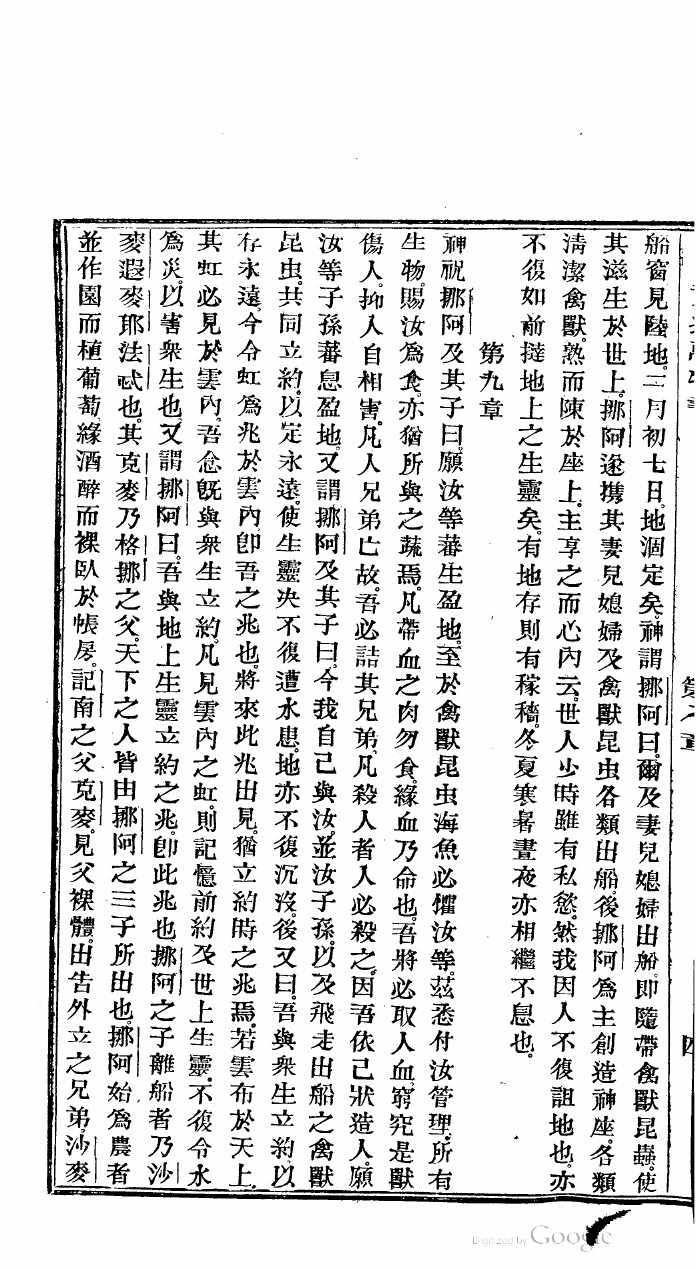 船窗見陸地。二月初七日。地涸定矣。神謂挪阿曰。爾及妻兒媳婦出船。即隨帶禽獸昆蟲。使
其滋生於世上。挪阿遂攜其妻兒媳婦及禽獸昆虫各類出船。後挪阿為主創造神座。各類
清潔禽獸。熟而陳於座上。主享之而心內云。世人少時雖有私慾。然我因人不復詛地也。亦
不復如前撻地上之生靈矣。有地存則有稼穡。冬夏寒暑晝夜亦相繼不息也。
第九章
神祝挪阿及其子曰。願汝等蕃生盈地。至於禽獸昆虫海魚必懼汝等。茲悉付汝管理。所有
生物。賜汝為食。亦猶所與之蔬焉。凡帶血之肉勿食。緣血乃命也。吾將必取人血。窮究是獸
傷人。抑人自相害。凡人兄弟亡故。吾必詰其兄弟。凡殺人者人必殺之。因吾依己狀造人。願
汝等子孫蕃息盈地。又謂挪阿及其子曰。今我自己與汝。並汝子孫。以及飛走出船之禽獸
昆虫。共同立約。以定永遠。使生靈決不復遭水患。地亦不復沉沒。後又曰。吾與衆生立約。以
存永遠。今令虹為兆於雲內。卽吾之兆也。將來此兆出見。猶立約時之兆焉。若雲布於天上。
其虹必見於雲內。吾念旣與衆生立約。凡見雲內之虹。則記憶前約及世上生靈。不復令水
為災。以害衆生也。又謂挪阿曰。吾與地上生靈立約之兆。卽此兆也。挪阿之子離船者乃沙
麥遐麥耶法忒也。其克麥乃格挪之父。天下之人皆由挪阿之三子所出也。挪阿始為農者
並作園而植葡萄緣酒醉而裸臥於帳房。記南之父克麥。見父裸體。出告外立之兄弟。沙麥
四
Digitized by Google